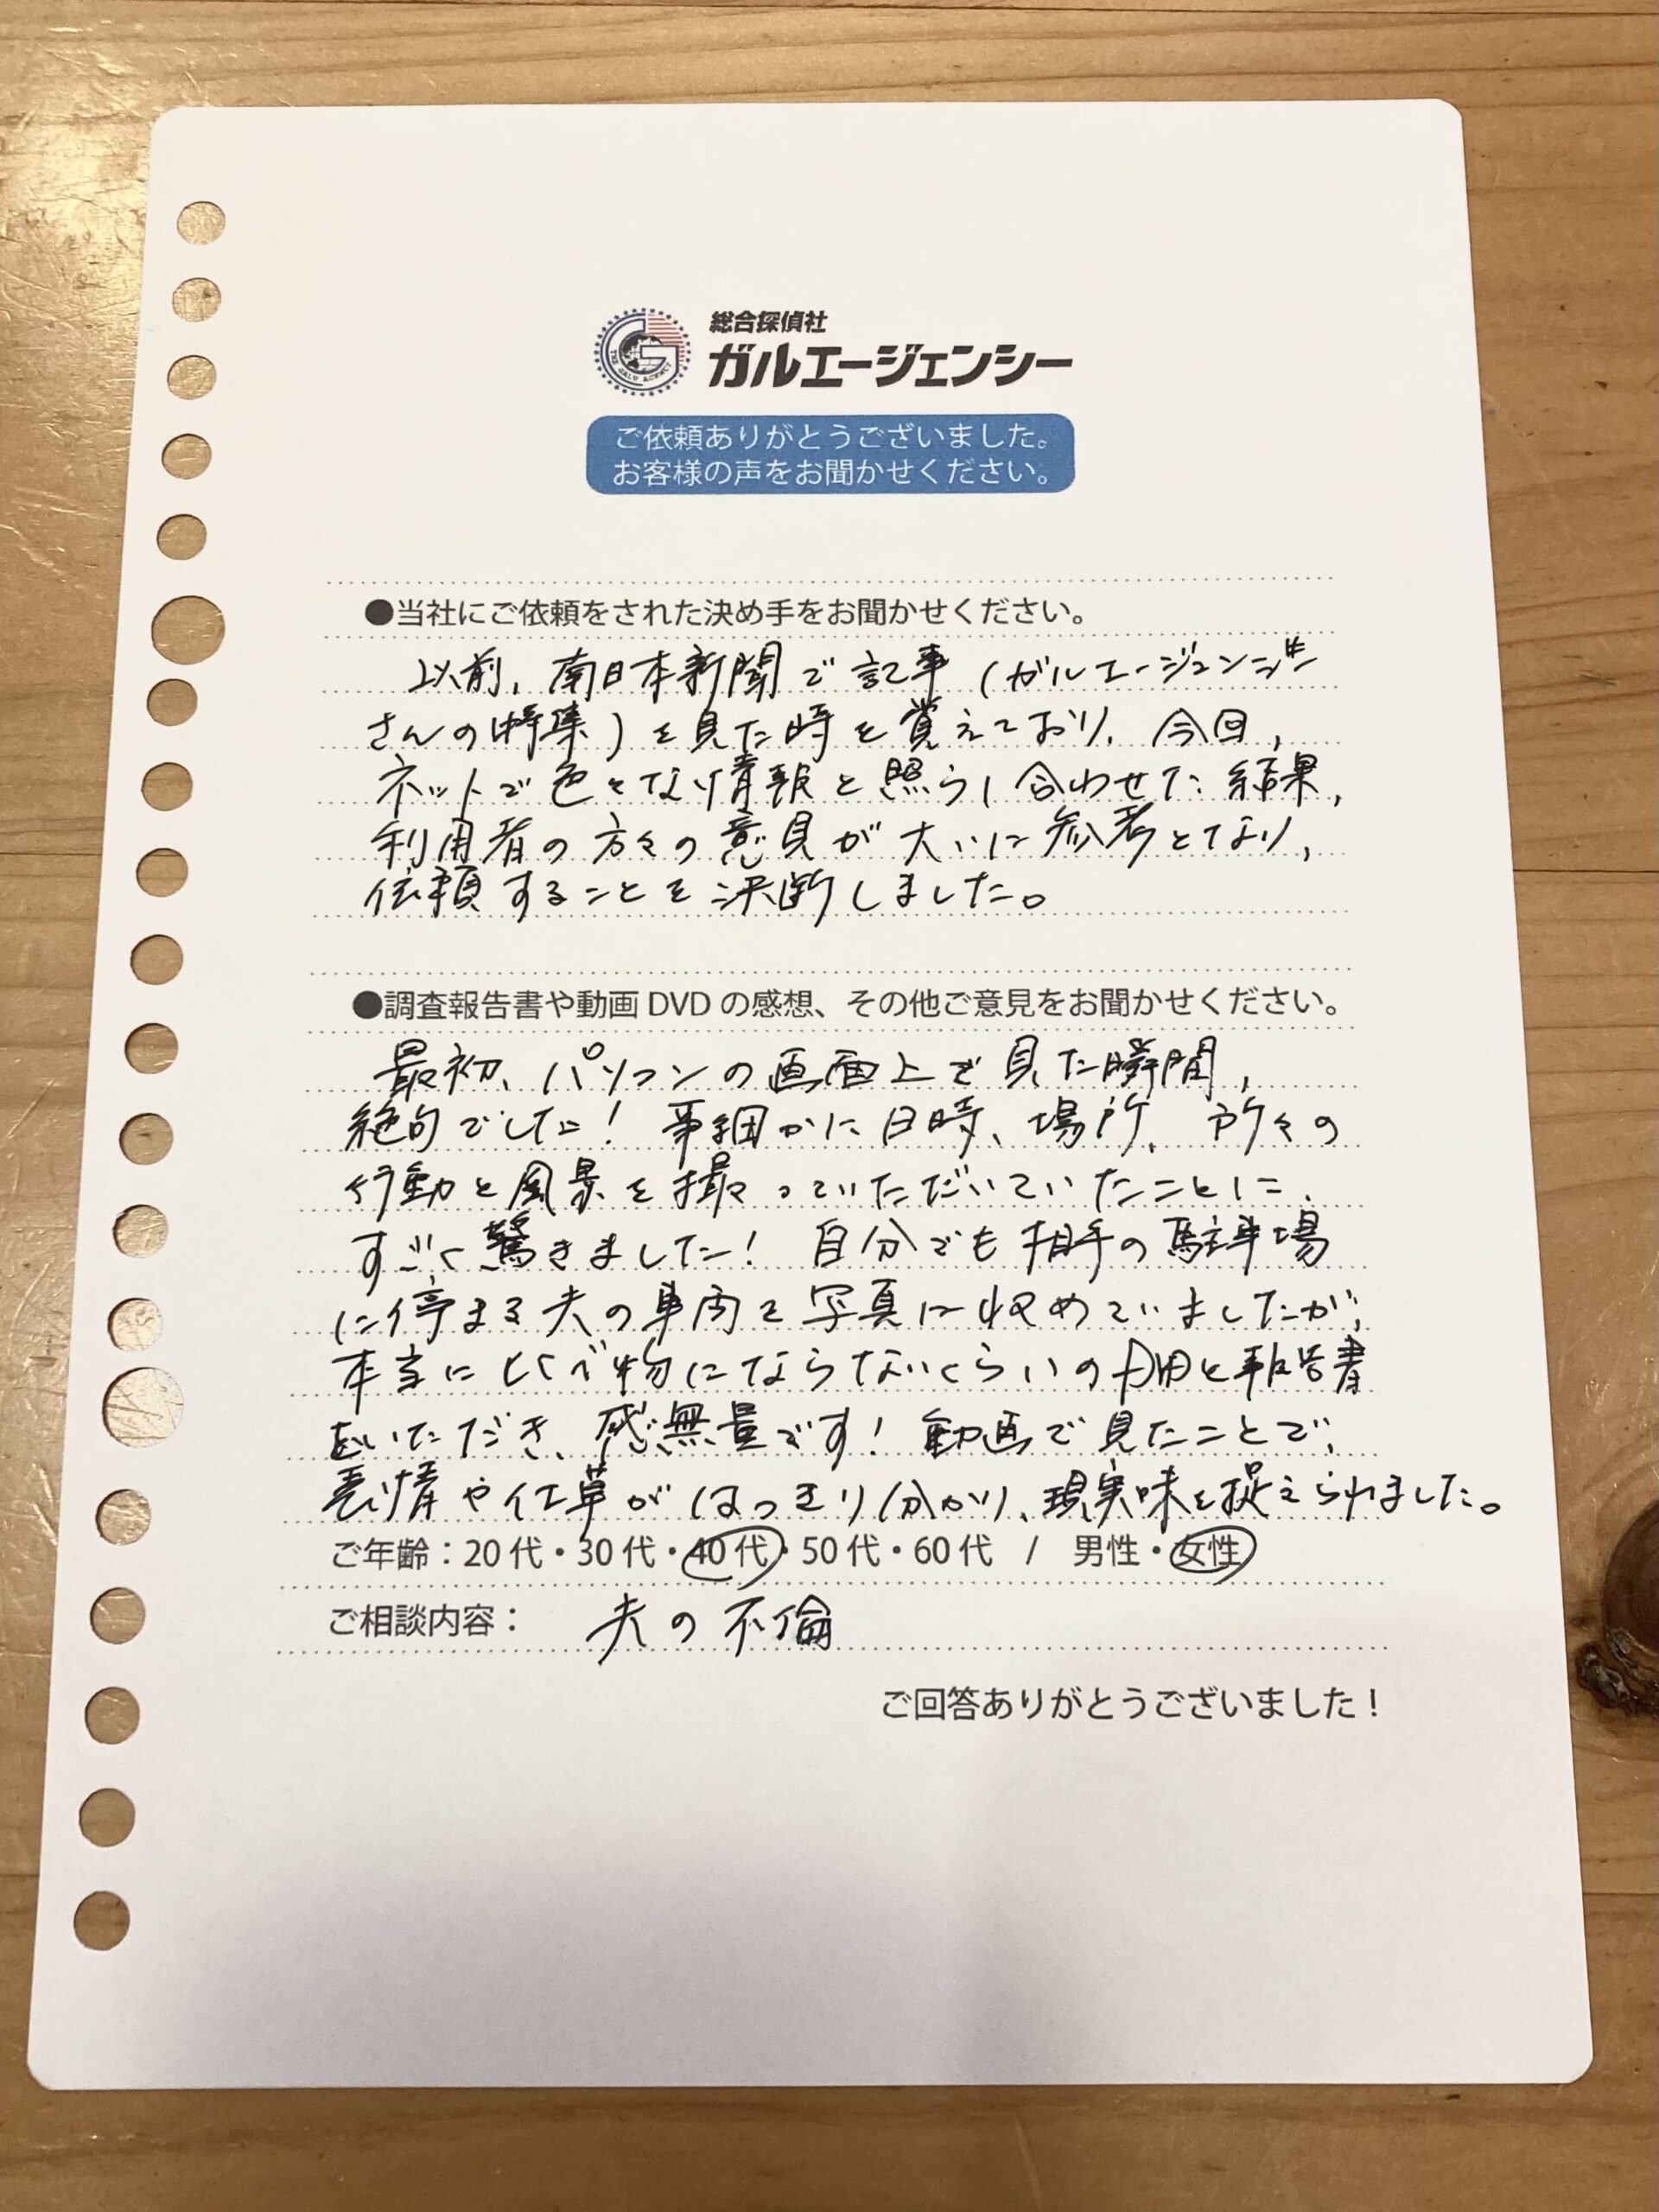 総合探偵社
ガルエージェンシー
THE GALU AGENCY
ご依頼ありがとうございました。
お客様の声をお聞かせください。
●当社にご依頼をされた決め手をお聞かせください。
以前、南日本新聞で記事(ガルエージェンシー
さんの特集)を見た時を覚えており、今回、
ネットで色々な情報と照らし合わせた結果、
利用者の方々の意見が大いに参考となり、
依頼することを決断しました。
●調査報告書や動画 DVD の感想、その他ご意見をお聞かせください。
最初、パソコンの画面上で見た瞬間、
絶句でした! 事細かに日時、場所、所々の
行動と風景を撮っていただいていたことに、
すごく驚きました! 自分でも相手の駐車場
に停まる夫の車両を写真に収めていましたが、
本当に比べ物にならないくらいの と報告書
をいただき、感無量です! 動画で見たことで、
表情や仕草がはっきり分かり、現実味を捉えられました。
ご年齢:20 代・30 代・40 代・50 代・60 代 / 男性・女性
ご相談内容: 夫の不倫
ご回答ありがとうございました!